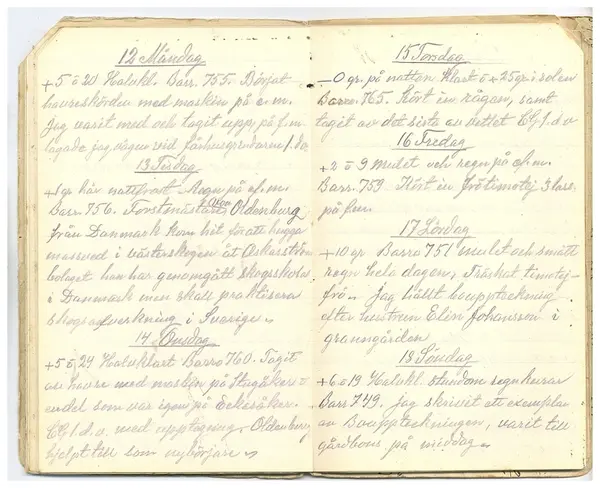 12 Måndag
+5 o 20 Halvkl. Barr. 755. Börjat
havreskörden med maskin på e.m.
Jag varit med och tagit upp, på f.m.
lagade jag vägen vid
13 Tisdag
+1 gr här nattfrost. Regn på ef.m.
Barr. 756. Forstmästare Oldenburg
från Danmark kom hit för att hugga
massved i västerskogen åt Oskarström
bolaget han har genomgått skogsskola
i Danmark men skall praktisera
skogsafverkning i Sverige.
14 Onsdag
+5 o 24 Halvklart Barro 760. Tagit
av havre med maskin på Stagåker o
en del som var igen på Eckesåker.
EG l.d.v. med upptagning. Oldenburg
hjelpt till som nybörjare.
15 Torsdag
-0 gr. på natten Klart o +25 gr i solen
Barro. 765. Kört in rågen, samt
tagit av det sista av vettet EG l.d.v
16 Fredag
+2 o 9 mulet och regn på ef.m.
Barr. 759. Kört in frötimotej 3 lass
på f.m.
17 Lördag
+10 gr Barro 751 mulet och smått
regn hela dagen, Träskat timotej-
frö. Jag hållt bouppteckning
efter hustrun Elin Johansson i
granngården
18 Söndag
+6 o 19 Halvkl. stundom regnskurar
Barr 749. Jag skrivit ett exemplar
av Bouppteckningen, varit till
på middag.